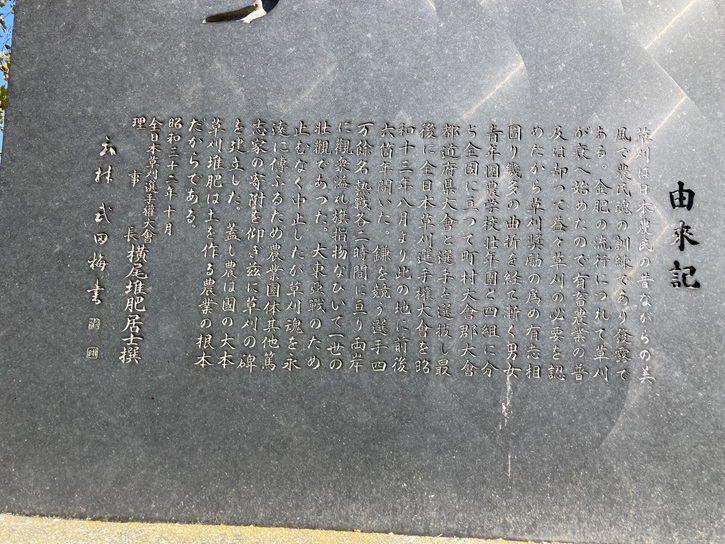 由來記
草刈は日本農民の昔ながらの美
風で農民魂の訓練であり發露で
ある 金肥の流行につれて草刈
が衰へ始めたので有畜農業の普
及は却つて益々草刈の必要を認
めたから草刈奨励の為の有志相
圖り幾多の曲折を経て漸く男女
青年團農学校壮年團と四組に分
ち全國に亘つて町村大會郡大會
都道府県大會と選手を選抜し最
後に全日本草刈選手権大會を昭
和十三年八月より此の地に前後
六箇年開いた。鎌を競う選手四
万余名熱戦各二時間に亘り両岸
に観衆溢れ旗指物なびいて一世の
壮観であつた。大東亜戦のため
止むなく中止したが草刈魂を永
遠に傳ふるため農業団体其他篤
志家の寄附を仰ぎ茲に草刈の碑
を建立した。蓋し農は國の大本
草刈堆肥は土を作る農業の根本
だからである
昭和三十二年十月
全日本草刈選手権大會
理事長 横尾堆肥居士撰
林 武田梅書